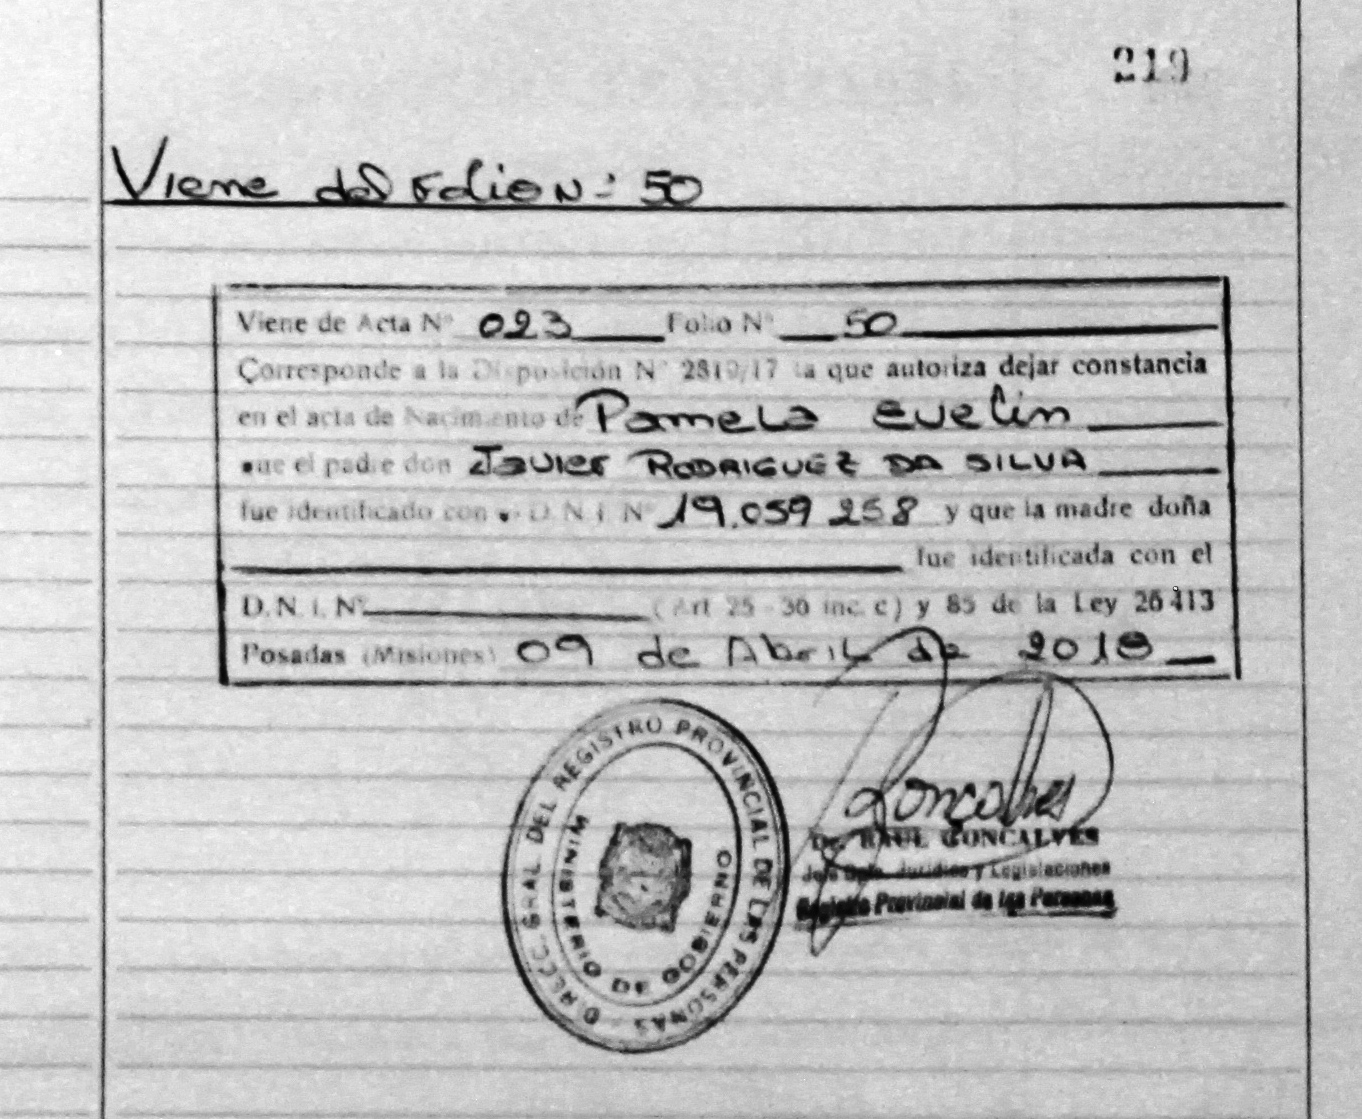 219
Viene del Folio N= 50
Viene de Acta Nº 023 Folio Nº 50
Corresponde a la Disposición Nº 2819/17 la que autoriza dejar constancia
en el acta de Nacimiento de Pamela Evelin
que el padre don Javier RODRIGUEZ DA SILVA
fue identificado con D.N.I. Nº 19.059 258 y que la madre doña
fue identificada con el
D.N.I. Nº (Art 25 - 36 inc. c) y 85 de la Ley 26413
Posadas (Misiones) 09 de Abril de 2018
DIRECC. GRAL. DEL REGISTRO PROVINCIAL DE LAS PERSONAS
MINISTERIO DE GOBIERNO
Goncalves
Dr. RAUL GONCALVES
Jefe Dpto. Jurídico y Legislaciones
Registro Provincial de las Personas